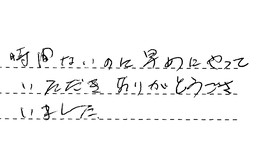 時間ないのに早めにやって
いただきありがとうござ
いました